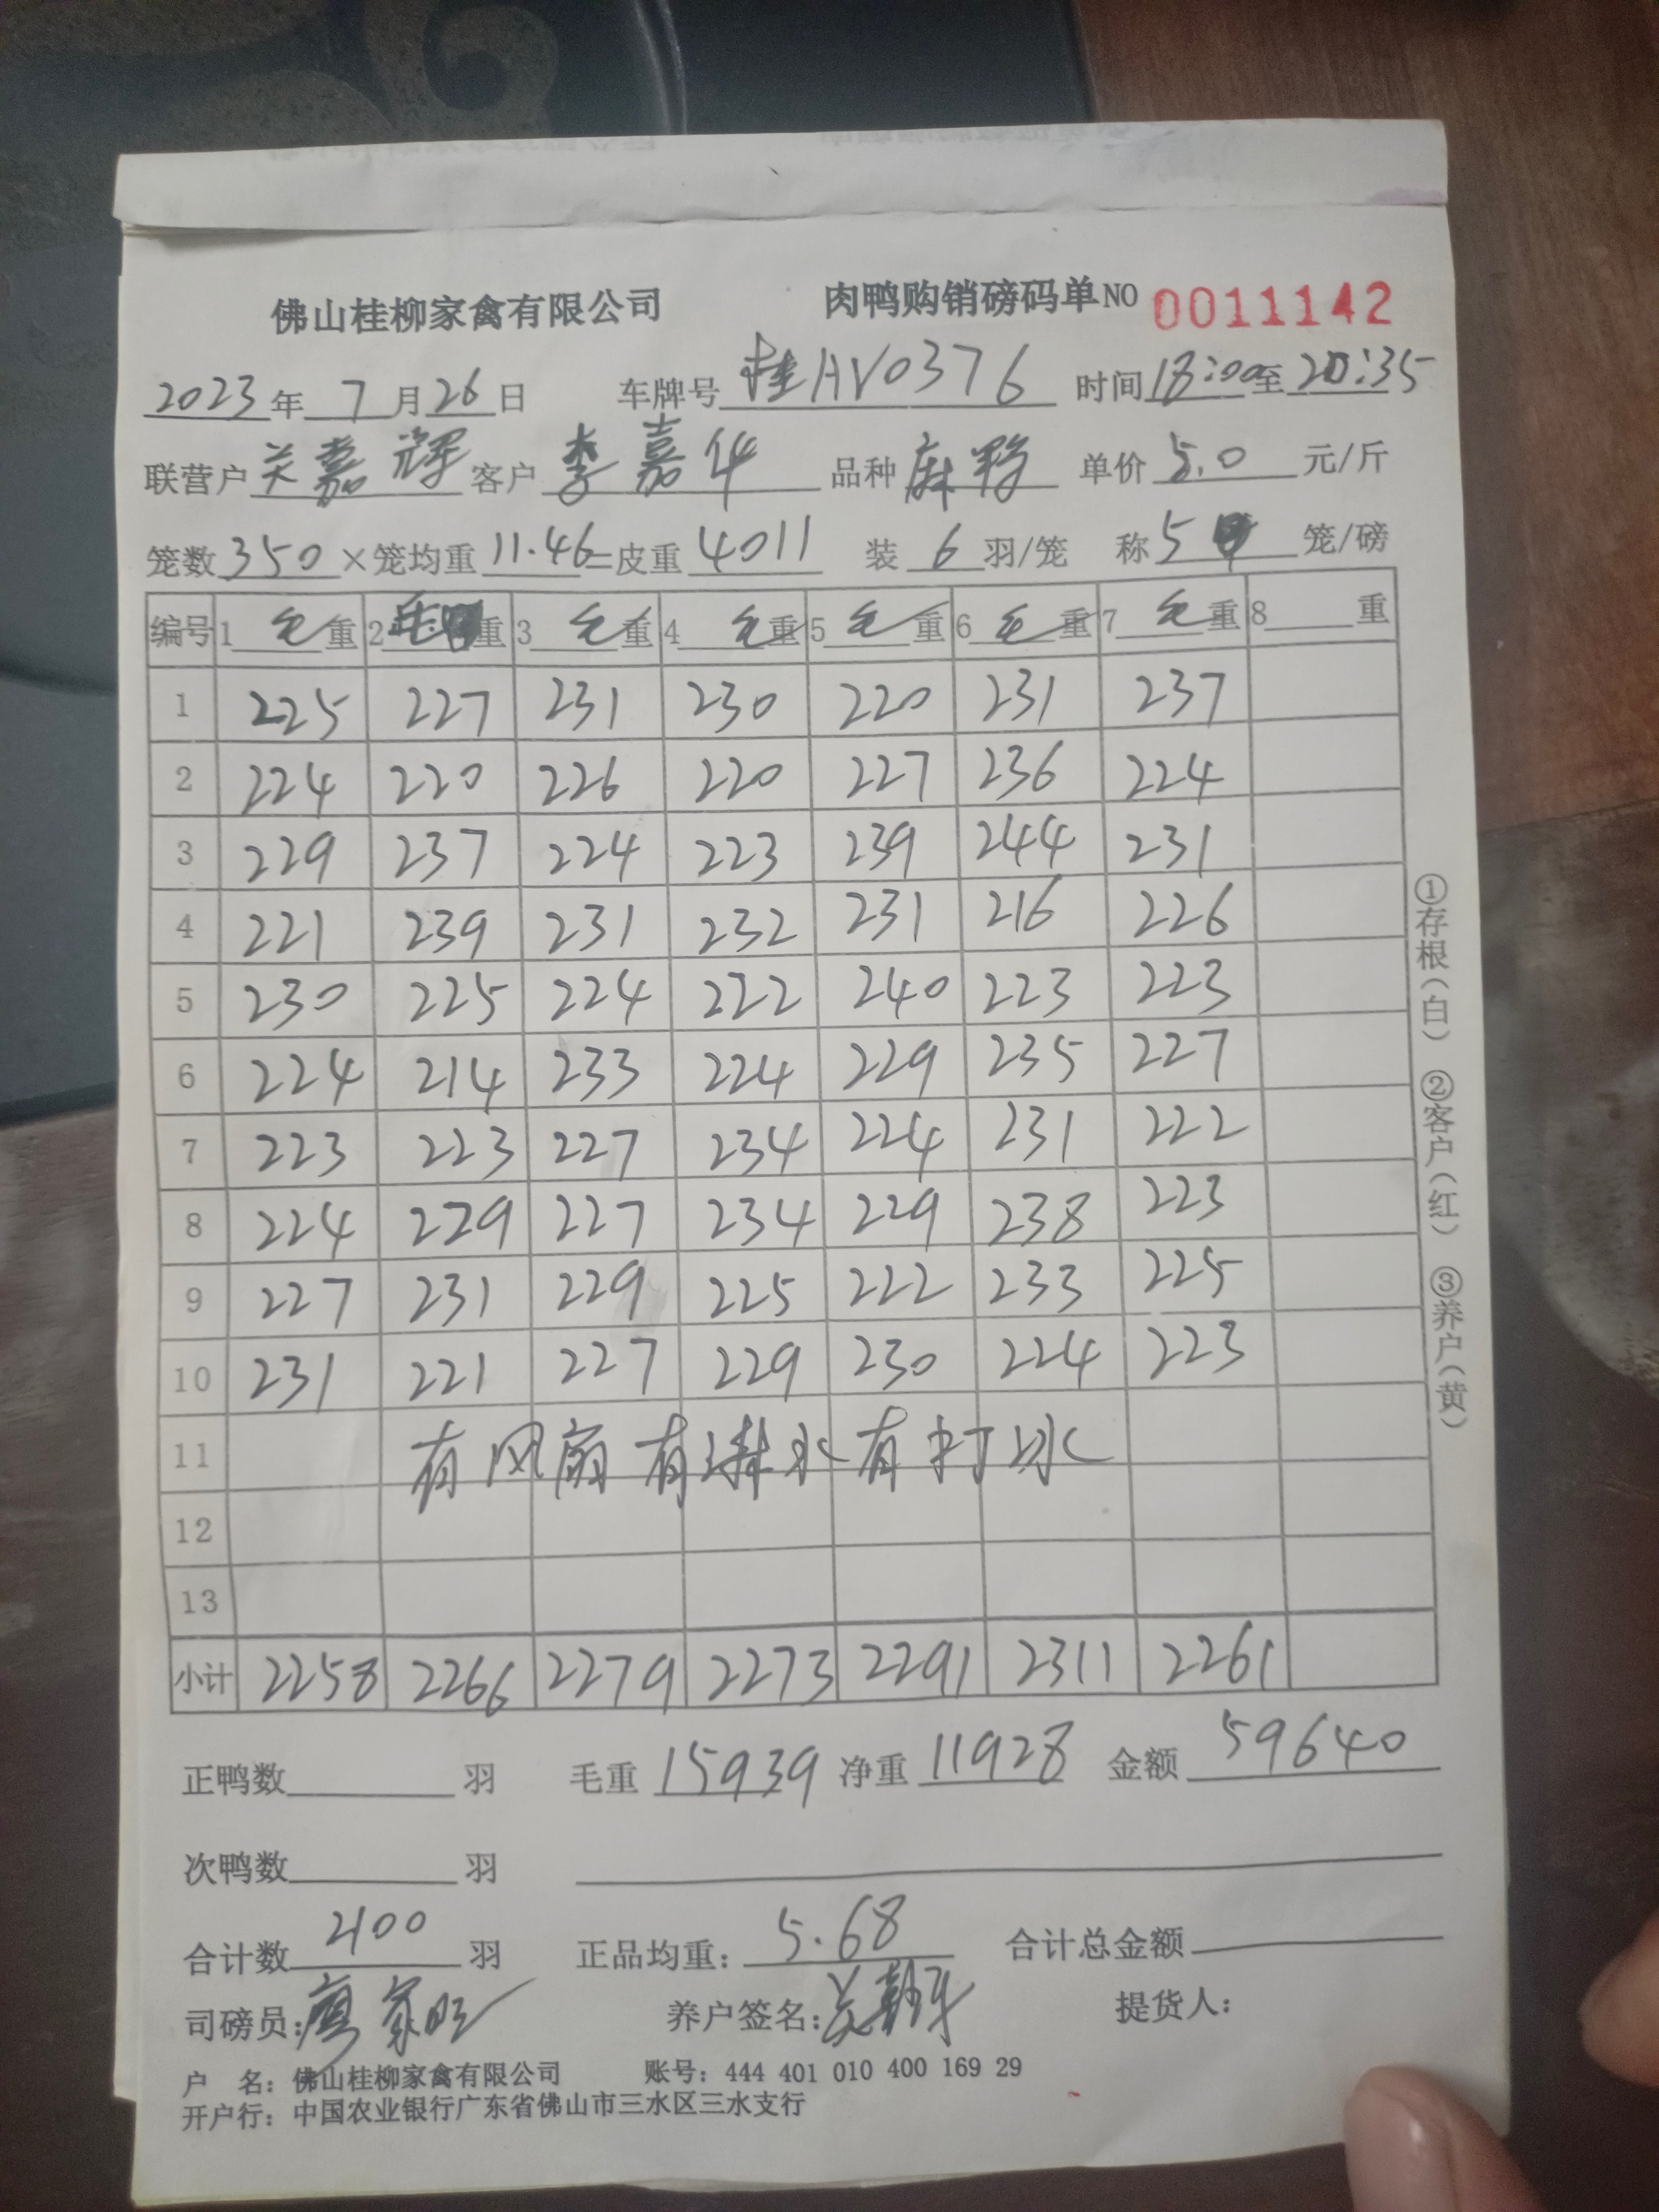 佛山桂柳家禽有限公司 肉鸭购销磅码单NO 0011142
2023年7月26日 车牌号 桂AV0376 时间18:00至20:35
联营户 关嘉辉 客户 李嘉华 品种 麻鸭 单价 5.0 元/斤
笼数350×笼均重11.46=皮重4011 装6羽/笼 称5笼/磅
编号 1毛重 2毛重 3毛重 4毛重 5毛重 6毛重 7毛重 8重
1 225 227 231 230 220 231 237
2 224 220 226 220 227 236 224
3 229 237 224 223 239 244 231
4 221 239 231 232 231 216 226
5 230 225 224 222 240 223 223
6 224 214 233 224 229 235 227
7 223 223 227 234 224 231 222
8 224 229 227 234 229 238 223
9 227 231 229 225 222 233 225
10 231 221 227 229 230 224 223
11 有风扇有淋水有打冰
12
13
小计 2258 2266 2279 2273 2291 2311 2261
正鸭数 羽 毛重 15939 净重 11928 金额 59640
次鸭数 羽
合计数 2100 羽 正品均重：5.68 合计总金额
司磅员：廖家旺 养户签名： 提货人：
户 名：佛山桂柳家禽有限公司 账号：444 401 010 400 169 29
开户行：中国农业银行广东省佛山市三水区三水支行
①存根（白） ②客户（红） ③养户（黄）